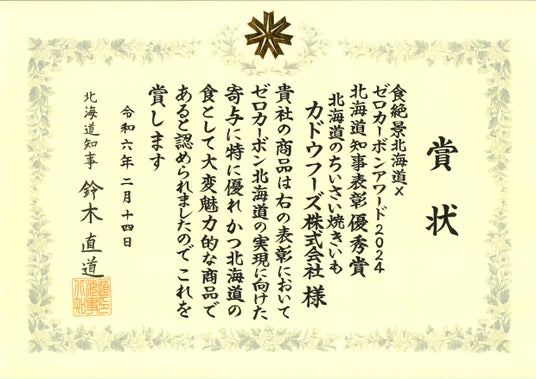 賞状
食絶景北海道×
ゼロカーボンアワード2024
北海道知事表彰優秀賞
北海道のちいさい焼きいも
カドウフーズ株式会社 様
貴社の商品は右の表彰において
ゼロカーボン北海道の実現に向けた
寄与に特に優れ かつ北海道の
食として大変魅力的な商品で
あると認められましたので これを
賞します
令和六年二月十四日
北海道知事 鈴木直道